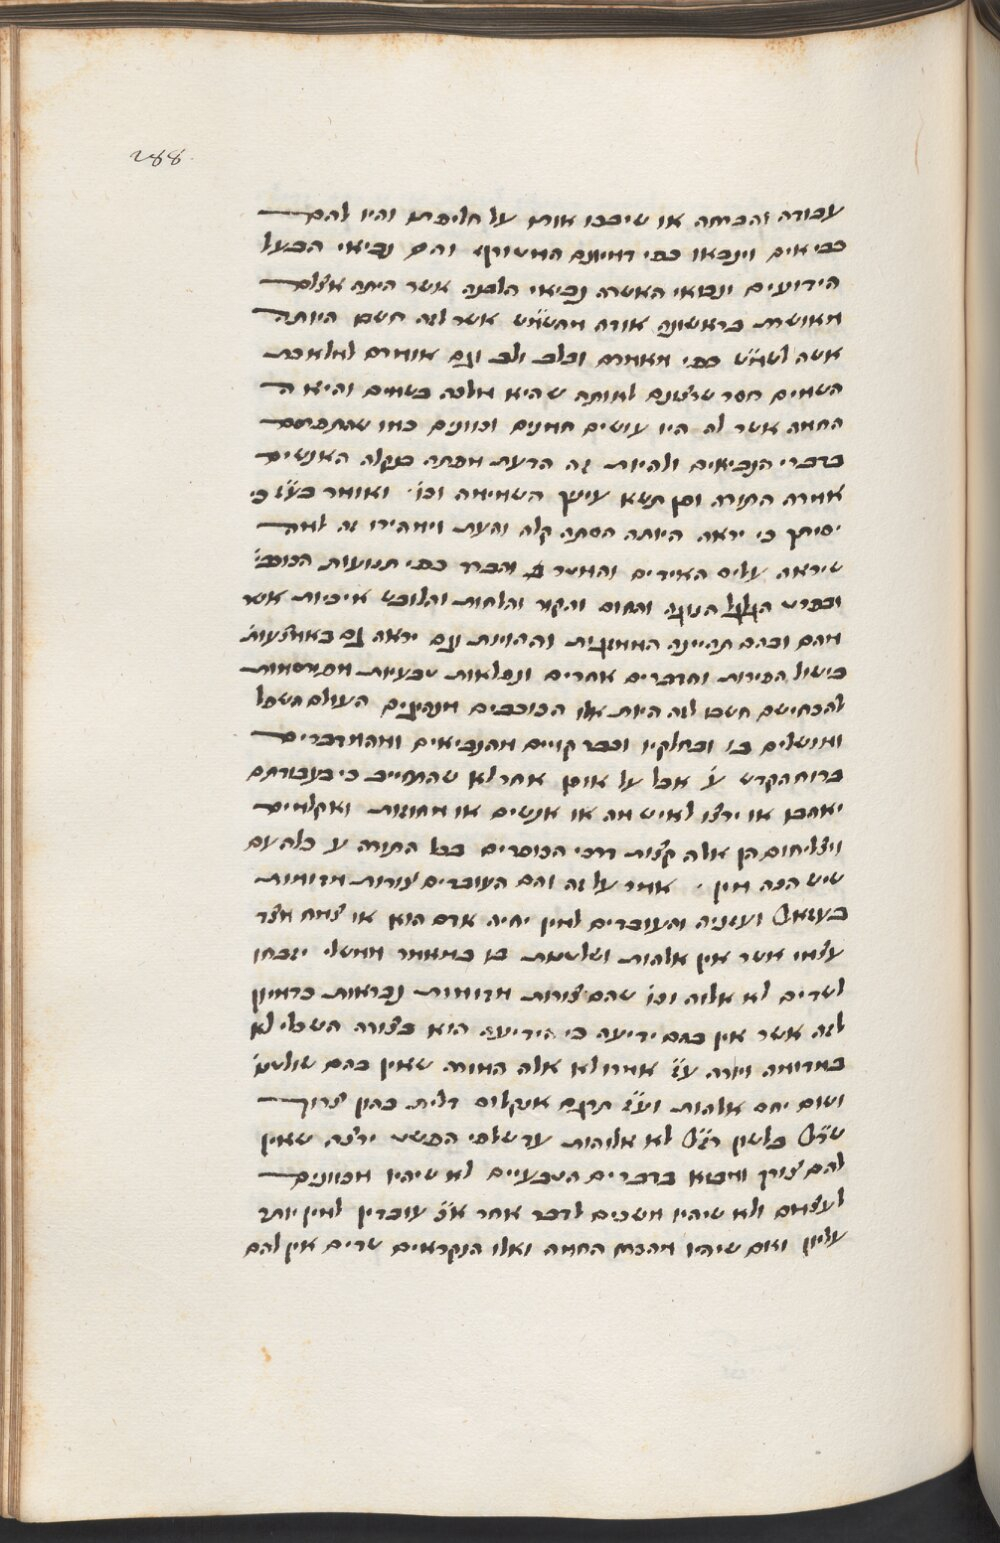 288.
עבודה והבחה או שיבכו אותו על חליפתו והיו להם
נביאים וינבאו כפי דמיונם המשותף והם נביאי הבעל
הידועים ונביאי האשרה נביאי הלבנה אשר היתה אצלם
מאושרת בראשונה אורה מהשמש אשר לזה חשבו היותה
אשה לשמש כפי מאמרם וגם אומרים למלאכת
השמים חסר שרצונם לאותה שהיא מלכה בשמים והיא ה
החמה אשר לה היו עושים חמנים וכוונים כמו שהתפרסם
בדברי הנביאים ולהיות זה הדעת מפתה בנקלה האנשים
אמרה התורה ופן תשא עיניך השמימה וכו' ואומר בע"ז כי
יסיתך כי יראה היותה הסתה קלה והעת וימהירו זה למה
שיראה עליהם האידים והמטר והברד כפי תנועות הכוכבי'
ובפרט הגלגל הנוגה והחום והקור והלחות והלובש איכיות אשר
מהם ובהם תהיינה הממזגות וההויות וגם יראה גם באמצעות
בישול הפירות והדברים אחרים ונפלאות טבעיות מפורסמות
להכחישם חשבו לזה היות אלו הכוכבים מנהיגים העולם השפל
ומושלים בו ובחלקיו וכבר קויים מהנביאים ומהמדברים
ברוח הקדש ע' אבל על אופן אחר לא שהתחייב כי בעבודתם
יאהבו או ירצו לאיש מה או אנשים או מחוזות ואקלמים
ויצליחום הן אלה קצות דרכי הכופרים בכל התורה ע' כלה עם
שיש הנה מין · אמר על זה והם העובדים צורות מדומות
והעובדים למין יחיה אדם הוא או צמח מצד
עצמו אשר אין אלהות ושלטנות בו במאמר ממשלי יזבחו
לשדים לא אלוה וכו' שהם צורות מדומות נבראות בדמיון
לזה אשר אין בהם ידיעה כי הידיעה הוא בצורה השכלי לא
במדומה ויורה ע"ז אמרו לא אלה המורה שאין בהם שולטנו'
ושום יחס אלהות וע"ז תרגם אונקלוס דלית בהון צרוך
בלשון לא אלוהות עד שלפי הפשט ירצה שאין
להם צורך ומבוא בדברים הטבעיים לא שיהיו מכוונים
לעצמם ולא שיהיו משכים לדבר אחר א"כ עובדין למין יותר
עליון ואם שיהיו מהכח החמה ואלו הנקראים שדים אין להם